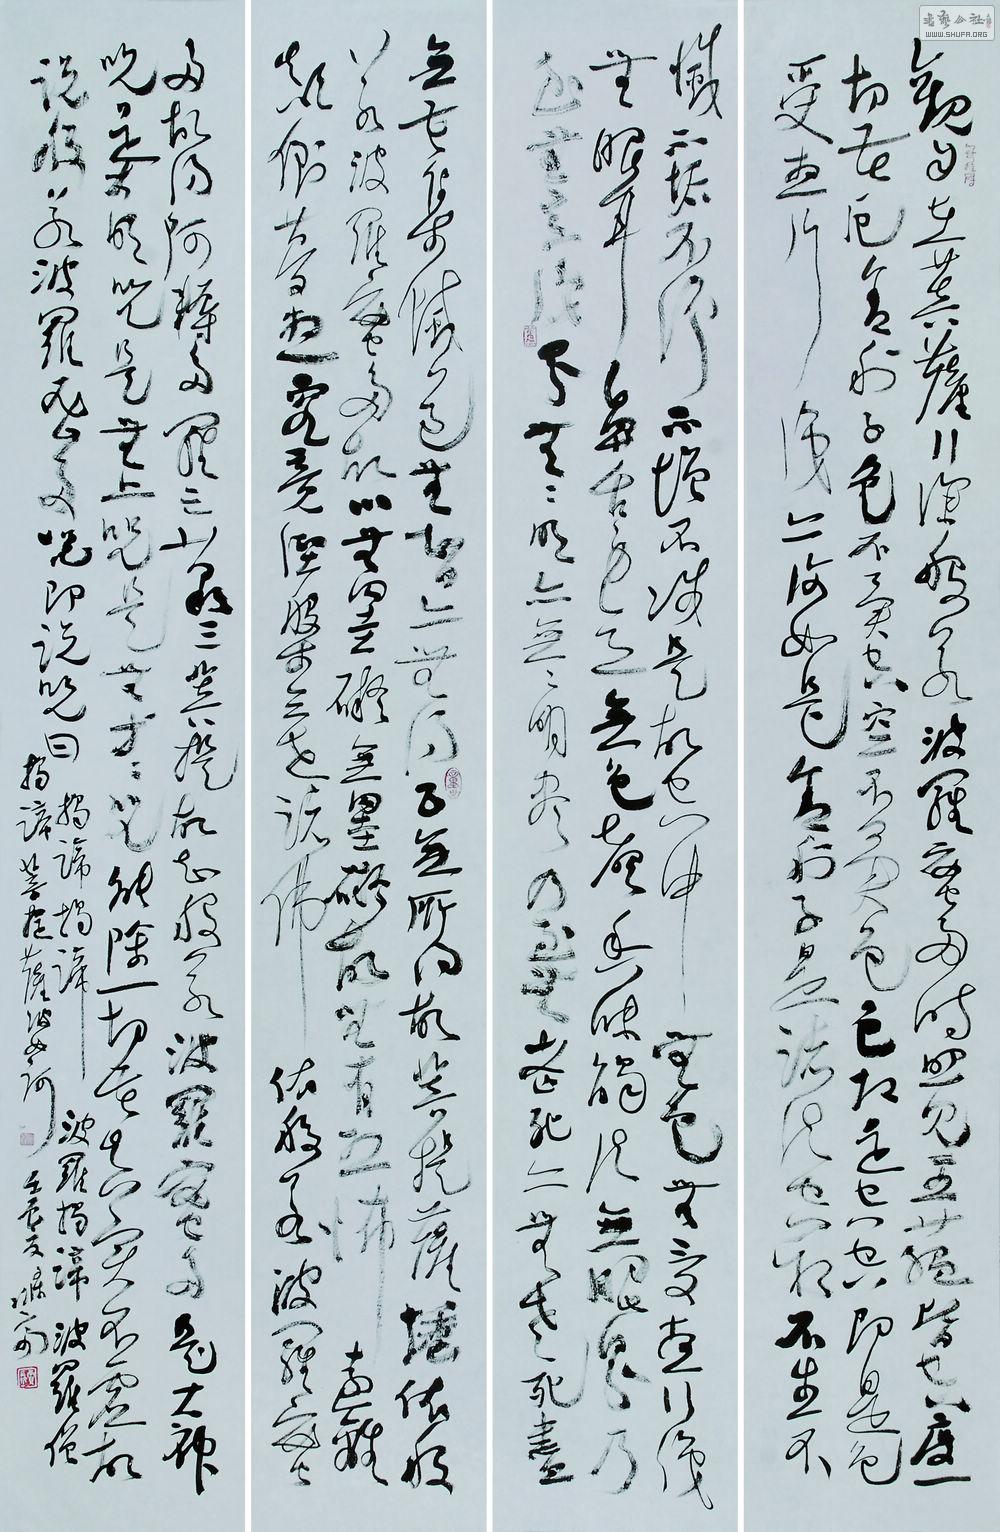 書藝公社
WWW.SHUFA.ORG
觀自在菩薩行深般若波羅蜜多時照見五蘊皆空度一
切苦厄舍利子色不異空空不異色色即是空空即是色
受想行識亦復如是舍利子是諸法空相不生不
滅不垢不淨不增不減是故空中無色無受想行識
無眼耳鼻舌身意無色聲香味觸法無眼界乃
至無意識界無無明亦無無明盡乃至無老死亦無老死盡
無苦集滅道無智亦無得以無所得故菩提薩埵依般
若波羅蜜多故心無罣礙無罣礙故無有恐怖遠離
顛倒夢想究竟涅槃三世諸佛依般若波羅蜜
多故得阿耨多羅三藐三菩提故知般若波羅蜜多是大神
咒是大明咒是無上咒是無等等咒能除一切苦真實不虛故
說般若波羅蜜多咒即說咒曰揭諦揭諦波羅揭諦波羅僧
揭諦菩提薩婆訶